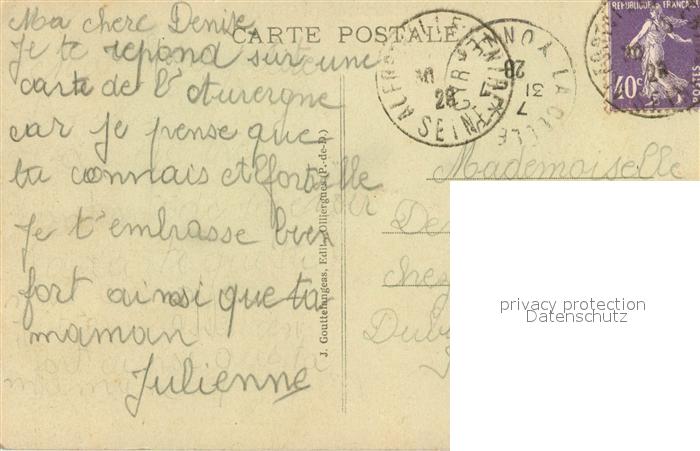 Ma chere Denise
Je te repond sur une
carte de l'Auvergne
car je pense que
tu connais Alfortville
Je t'embrasse bien
fort ainsi que ta
maman
Julienne
CARTE POSTALE
J. Gouttefangeas, Edit., Olliergues (P.-de-D.)
REPUBLIQUE FRANÇAISE
40c
POSTES
ALFORTVILLE
SEINE
LA CELLE
7
31
Mademoiselle
De
chez
Dub
privacy protection
Datenschutz